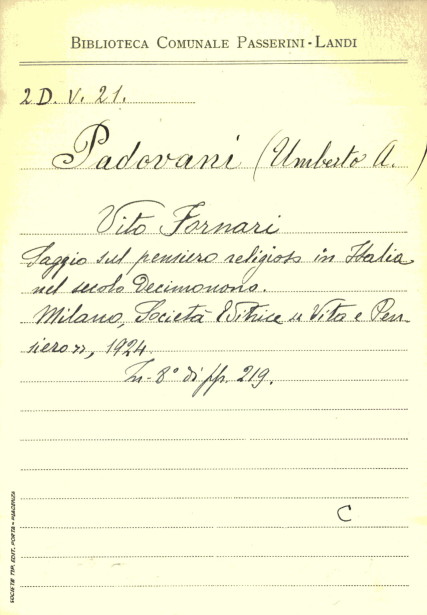 BIBLIOTECA COMUNALE PASSERINI-LANDI
2 D. V. 21.
Padovani (Umberto A.)
Vito Fornari
Saggio sul pensiero religioso in Italia
nel secolo decimonono.
Milano, Società Editrice « Vita e Pen-
siero », 1924.
In-8° di pp. 219.
C
SOCIETÀ TIP. EDIT. PORTA - PIACENZA